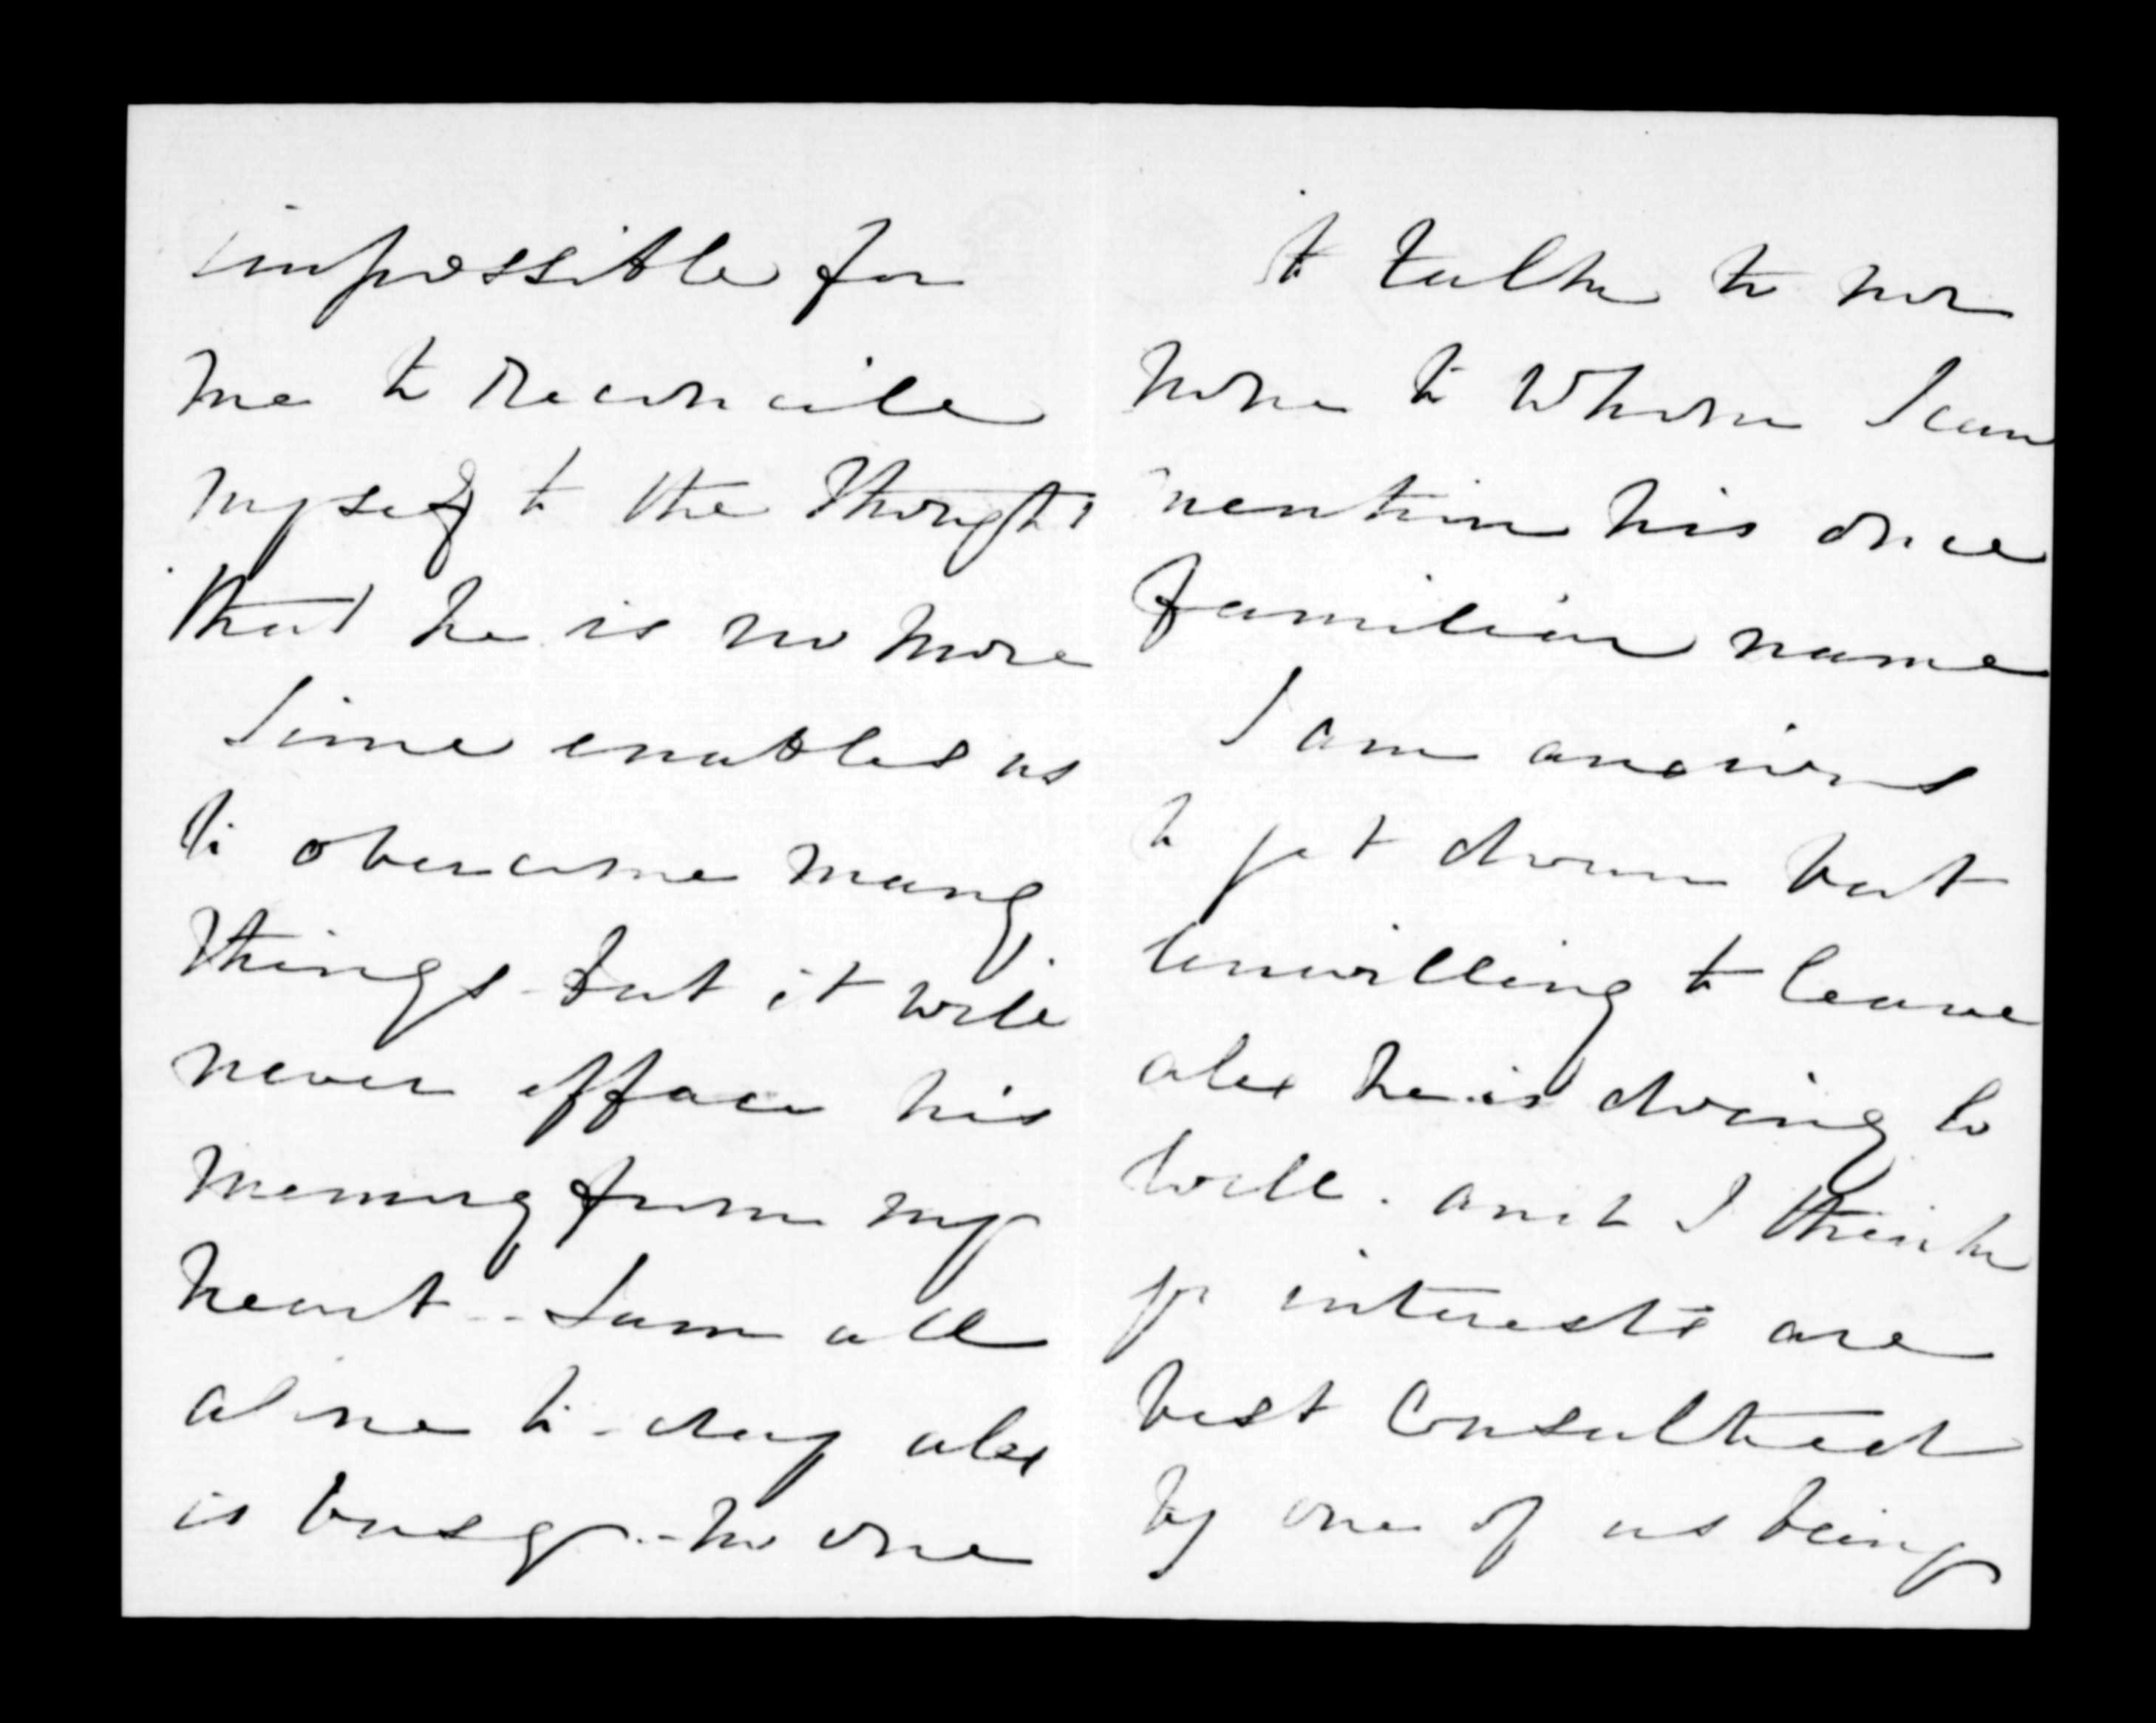 impossible for
me to reconcile
myself to the thought
that he is no more
Time enables us
to overcome many
things - but it will
never efface his
memory from my
heart -- I am all
alone to-day alex
is busy -- no one
to talk to nor
none to whom I can
mention his once
familiar name
I am anxious
to get down but
unwilling to leave
alex he is doing so
well. and I think
yr interests are
best consulted
by one of us being